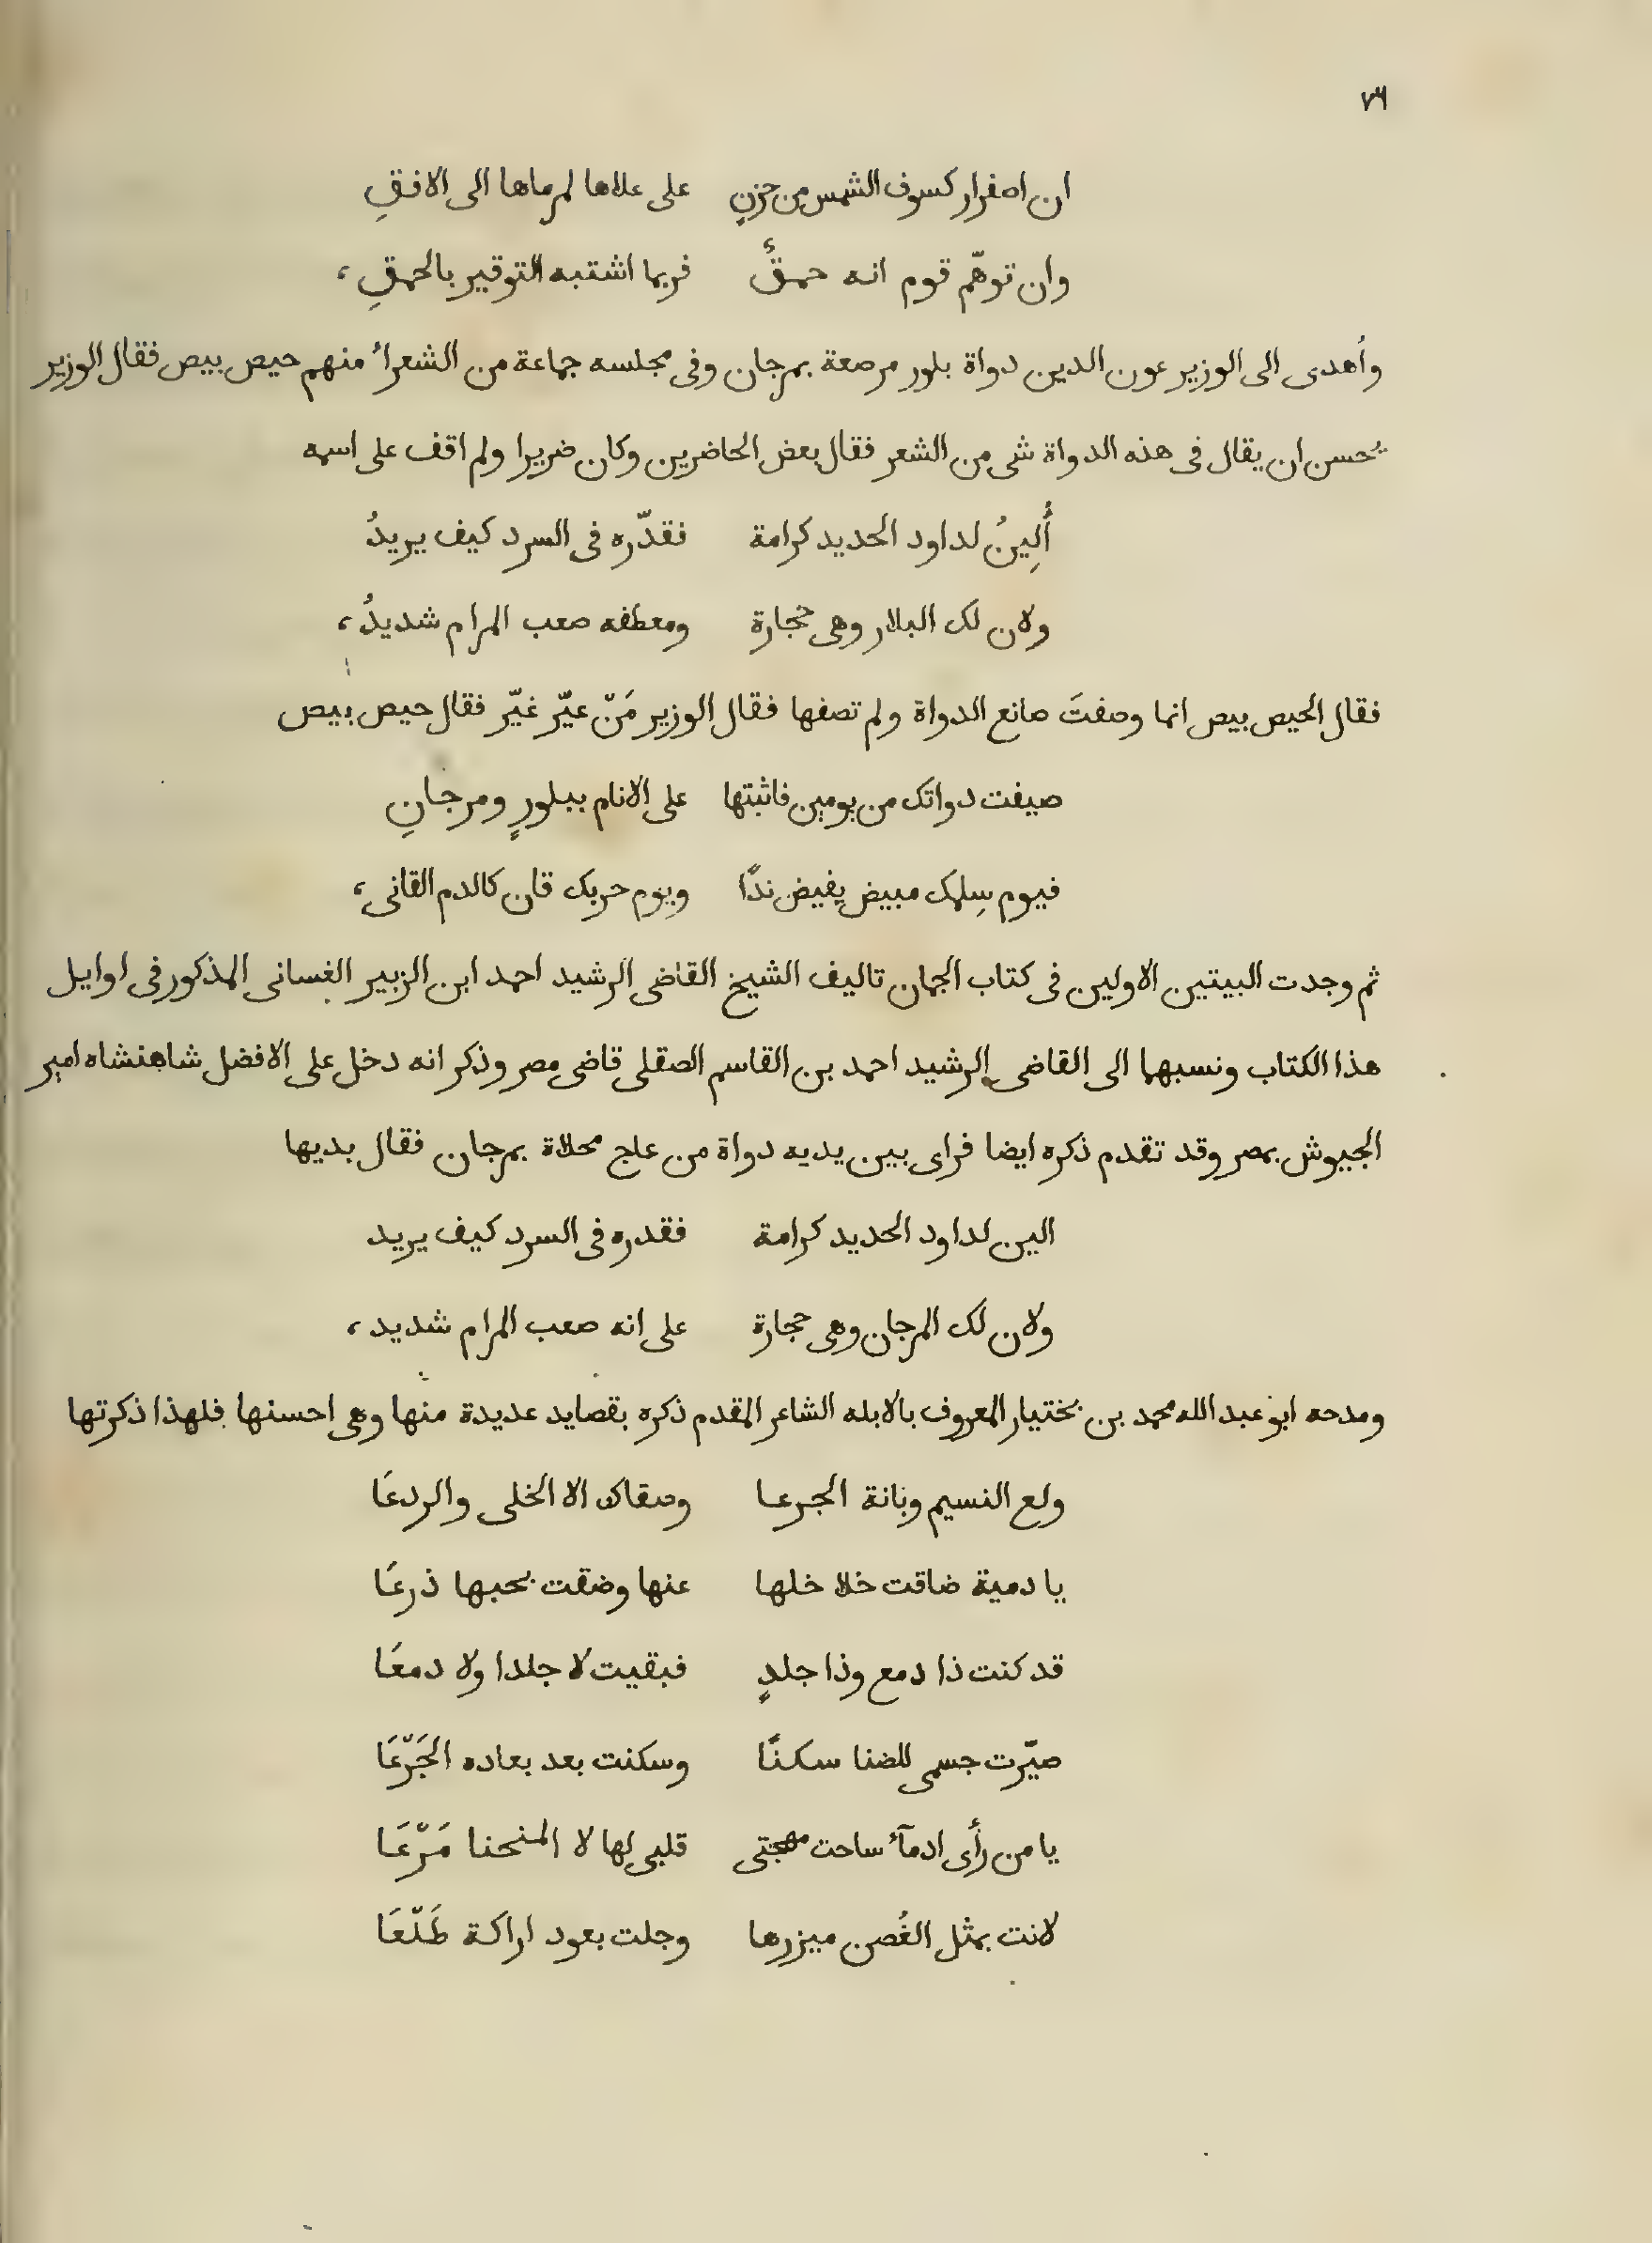 ٧٦
ان اصفرار كسوف الشمس من حزنٍ على علاها لمرماها الى الافقِ
وان توهّم قوم انه حمقٌ فربما اشتبه التوقير بالحمقِ،
وأهدى الى الوزير عون الدين دواة بلور مرصعة بمرجان وفى مجلسه جماعة من الشعراء منهم حيص بيص فقال الوزير
يحسن ان يقال فى هذه الدواة شى من الشعر فقال بعض الحاضرين وكان ضريرا ولم اقف على اسمه
أُلِينُ لداود الحديد كرامة فقدّره فى السرد كيف يريدُ
ولان لك البلار وهى حجارة ومعطفه صعب المرام شديدُ،
فقال الحيص بيص انما وصفتَ صانع الدواة ولم تصفها فقال الوزير مَنْ عيّر غيّر فقال حيص بيص
صيفت دواتك من يومين فاثبتها على الانام ببلورٍ ومرجانِ
فيوم سِلمك مبيض يفيض ندًا ويوم حربك قان كالدم القانى،
ثم وجدت البيتين الاولين فى كتاب الجمان تاليف الشيخ القاضى الرشيد احمد ابن الزبير الغسانى المذكور فى اوايل
هذا الكتاب ونسبهما الى القاضى الرشيد احمد بن القاسم الصقلى قاضى مصر وذكر انه دخل على الافضل شاهنشاه امير
الجيوش بمصر وقد تقدم ذكره ايضا فراى بين يديه دواة من عاج محلاة بمرجان فقال بديها
الين لداود الحديد كرامة فقدره فى السرد كيف يريد
ولان لك المرجان وهى حجارة على انه صعب المرام شديد،
ومدحه ابو عبد الله محمد بن بختيار المعروف بالابله الشاعر المقدم ذكره بقصايد عديدة منها وهى احسنها فلهذا ذكرتها
ولع النسيم وبانة الجرعا وصقاك الا الخلى والردعَا
يا دمية ضاقت خلا خلها عنها وضقت بحبها ذرعَا
قد كنت ذا دمع وذا جلدٍ فبقيت لا جلدا ولا دمعَا
صيّرت جسمى للضنا سكنًا وسكنت بعد بعاده الجَرّعَا
يا من رأى ادمآء ساحت مهجتى قلبى لها لا المنحنا مَرّعَا
لانت بمثل الغُصن ميزرها وجلت بعود اراكة طَلّعَا